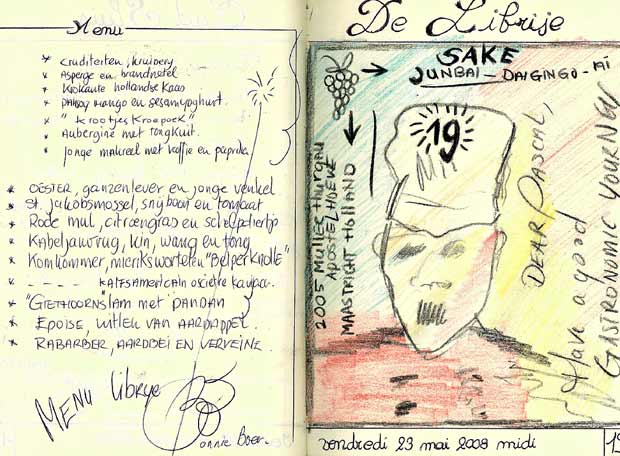 Menu
* cruditeiten, kruiperij
* Asperge en brandnetel
* Krokante hollandse kaas
* mango en sesamyoghurt.
* "krootjes Kroepoek"
* Aubergine met tongkuit.
* jonge makreel met koffie en paprika
* OESTER, ganzenlever en jonge venkel
* St. jakobsmossel, snijboon en tomaat
* Rode mul, citroengras en schelpdiertjes
* Kabeljauwrug, kin, wang en tong
* Komkommer, mierikswortel en "BelperKnolle"
* - - - - -
* "GIETHOORNS" lam met PANDAN
* EPOISE, UITLEN VAN AARDAPPEL.
* RABARBER, AARDBEI EN VERVEINE.
MENU librije
Jonnie Boer.
De Librije
SAKE
JUNMAI - DAIGINGO -
19
2005 Muller Thurgau
APOSTELHOEVE
MAASTRICHT HOLLAND
DEAR PASCAL,
Have a good
GASTRONOMIC YOURNEY
vendredi 23 mai 2008 midi